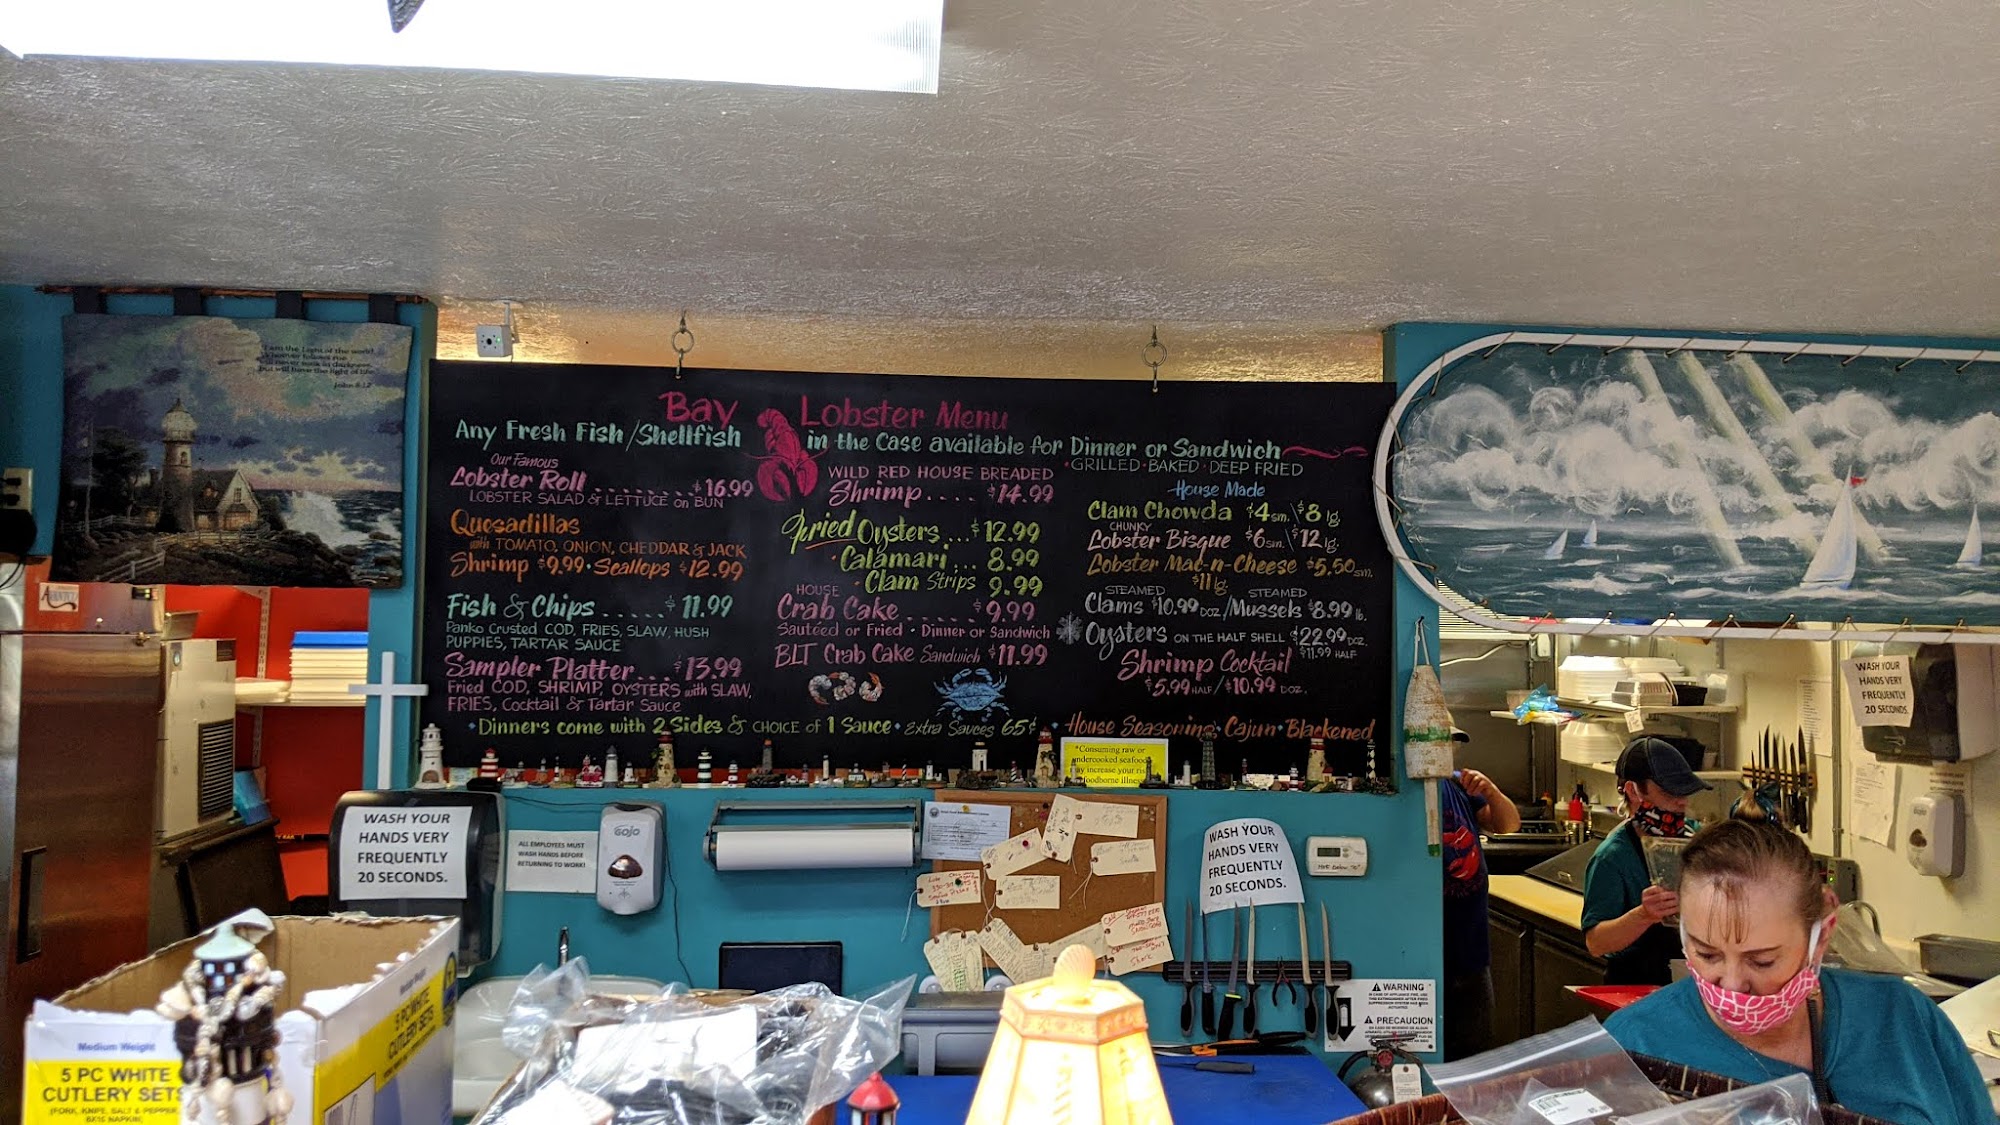 Bay Lobster Menu
Any Fresh Fish/Shellfish in the Case available for Dinner or Sandwich
• GRILLED • BAKED • DEEP FRIED
Our Famous
Lobster Roll ........ $16.99
LOBSTER SALAD & LETTUCE on BUN
Quesadillas
with TOMATO, ONION, CHEDDAR & JACK
Shrimp $9.99 • Scallops $12.99
Fish & Chips ...... $11.99
Panko Crusted COD, FRIES, SLAW, HUSH
PUPPIES, TARTAR SAUCE
Sampler Platter... $13.99
Fried COD, SHRIMP, OYSTERS with SLAW,
FRIES, Cocktail & Tartar Sauce
WILD RED HOUSE BREADED
Shrimp.... $14.99
Fried Oysters ... $12.99
• Calamari ... 8.99
• Clam Strips 9.99
HOUSE
Crab Cake ...... $9.99
Sautéed or Fried • Dinner or Sandwich
BLT Crab Cake Sandwich $11.99
House Made
Clam Chowda $4 sm. \ $8 lg.
CHUNKY
Lobster Bisque $6 sm. \ $12 lg.
Lobster Mac-n-Cheese $5.50 sm.
$11 lg.
STEAMED STEAMED
Clams $10.99 DOZ. / Mussels $8.99 lb.
Oysters ON THE HALF SHELL $22.99 DOZ.
$11.99 HALF
Shrimp Cocktail
$5.99 HALF / $10.99 DOZ.
• Dinners come with 2 Sides & CHOICE of 1 Sauce • Extra Sauces 65¢ • House Seasoning • Cajun • Blackened
*Consuming raw or
undercooked seafood
may increase your ris
foodborne illness
I am the Light of the world
Whoever follows me
will never walk in darkness,
but will have the light of life.
John 8:12
WASH YOUR
HANDS VERY
FREQUENTLY
20 SECONDS.
ALL EMPLOYEES MUST
WASH HANDS BEFORE
RETURNING TO WORK!
GOJO
WASH YOUR
HANDS VERY
FREQUENTLY
20 SECONDS.
WASH YOUR
HANDS VERY
FREQUENTLY
20 SECONDS.
WARNING
PRECAUCION
Medium Weight
5 PC WHITE
CUTLERY SETS
(FORK, KNIFE, SALT & PEPPER,
5 PC WHITE
CUTLERY SETS